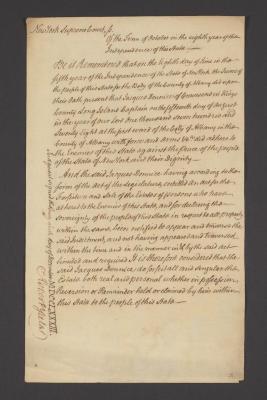 New York Supreme Court, ss.
Of the Term of October in the eighth year of the
Independence of this State.
Be it Remembered that on the Eighth day of June in the
fifth year of the Independence of the State of New York the Jurors of
the people of this State for the Body of the County of Albany did upon
their Oath present that Jacques Dennice of in Kings
County Long Island Captain on the fifteenth day of August
in the year of our Lord one thousand seven hundred and
Seventy Eight at the first ward of the City of Albany in the
County of Albany with force and arms &c. did adhere to
the Enemies of this State against the peace of the people
of the State of New York and their Dignity.
And the said Jacques Dennice, having according to the
form of the act of the Legislature, entitled an act for the
Forfeiture and Sale of the Estates of persons who have
adhered to the Enemies of this State, and for declaring the
sovereignty of the people of this State in respect to all property
within the same, been notified to appear and traverse the
said Indictment, and not having appeared and Traversed
within the time and in the manner in & by the said act
limited and required It is therefore considered that the
said Jacques Dennice, do forfeit all and Singular the
Estate both real and personal whether in possession
Reversion or Remainder held or claimed by him within
this State to the people of this State.
Judgment signed this day of MDCCLXXXIII
Robert Yates